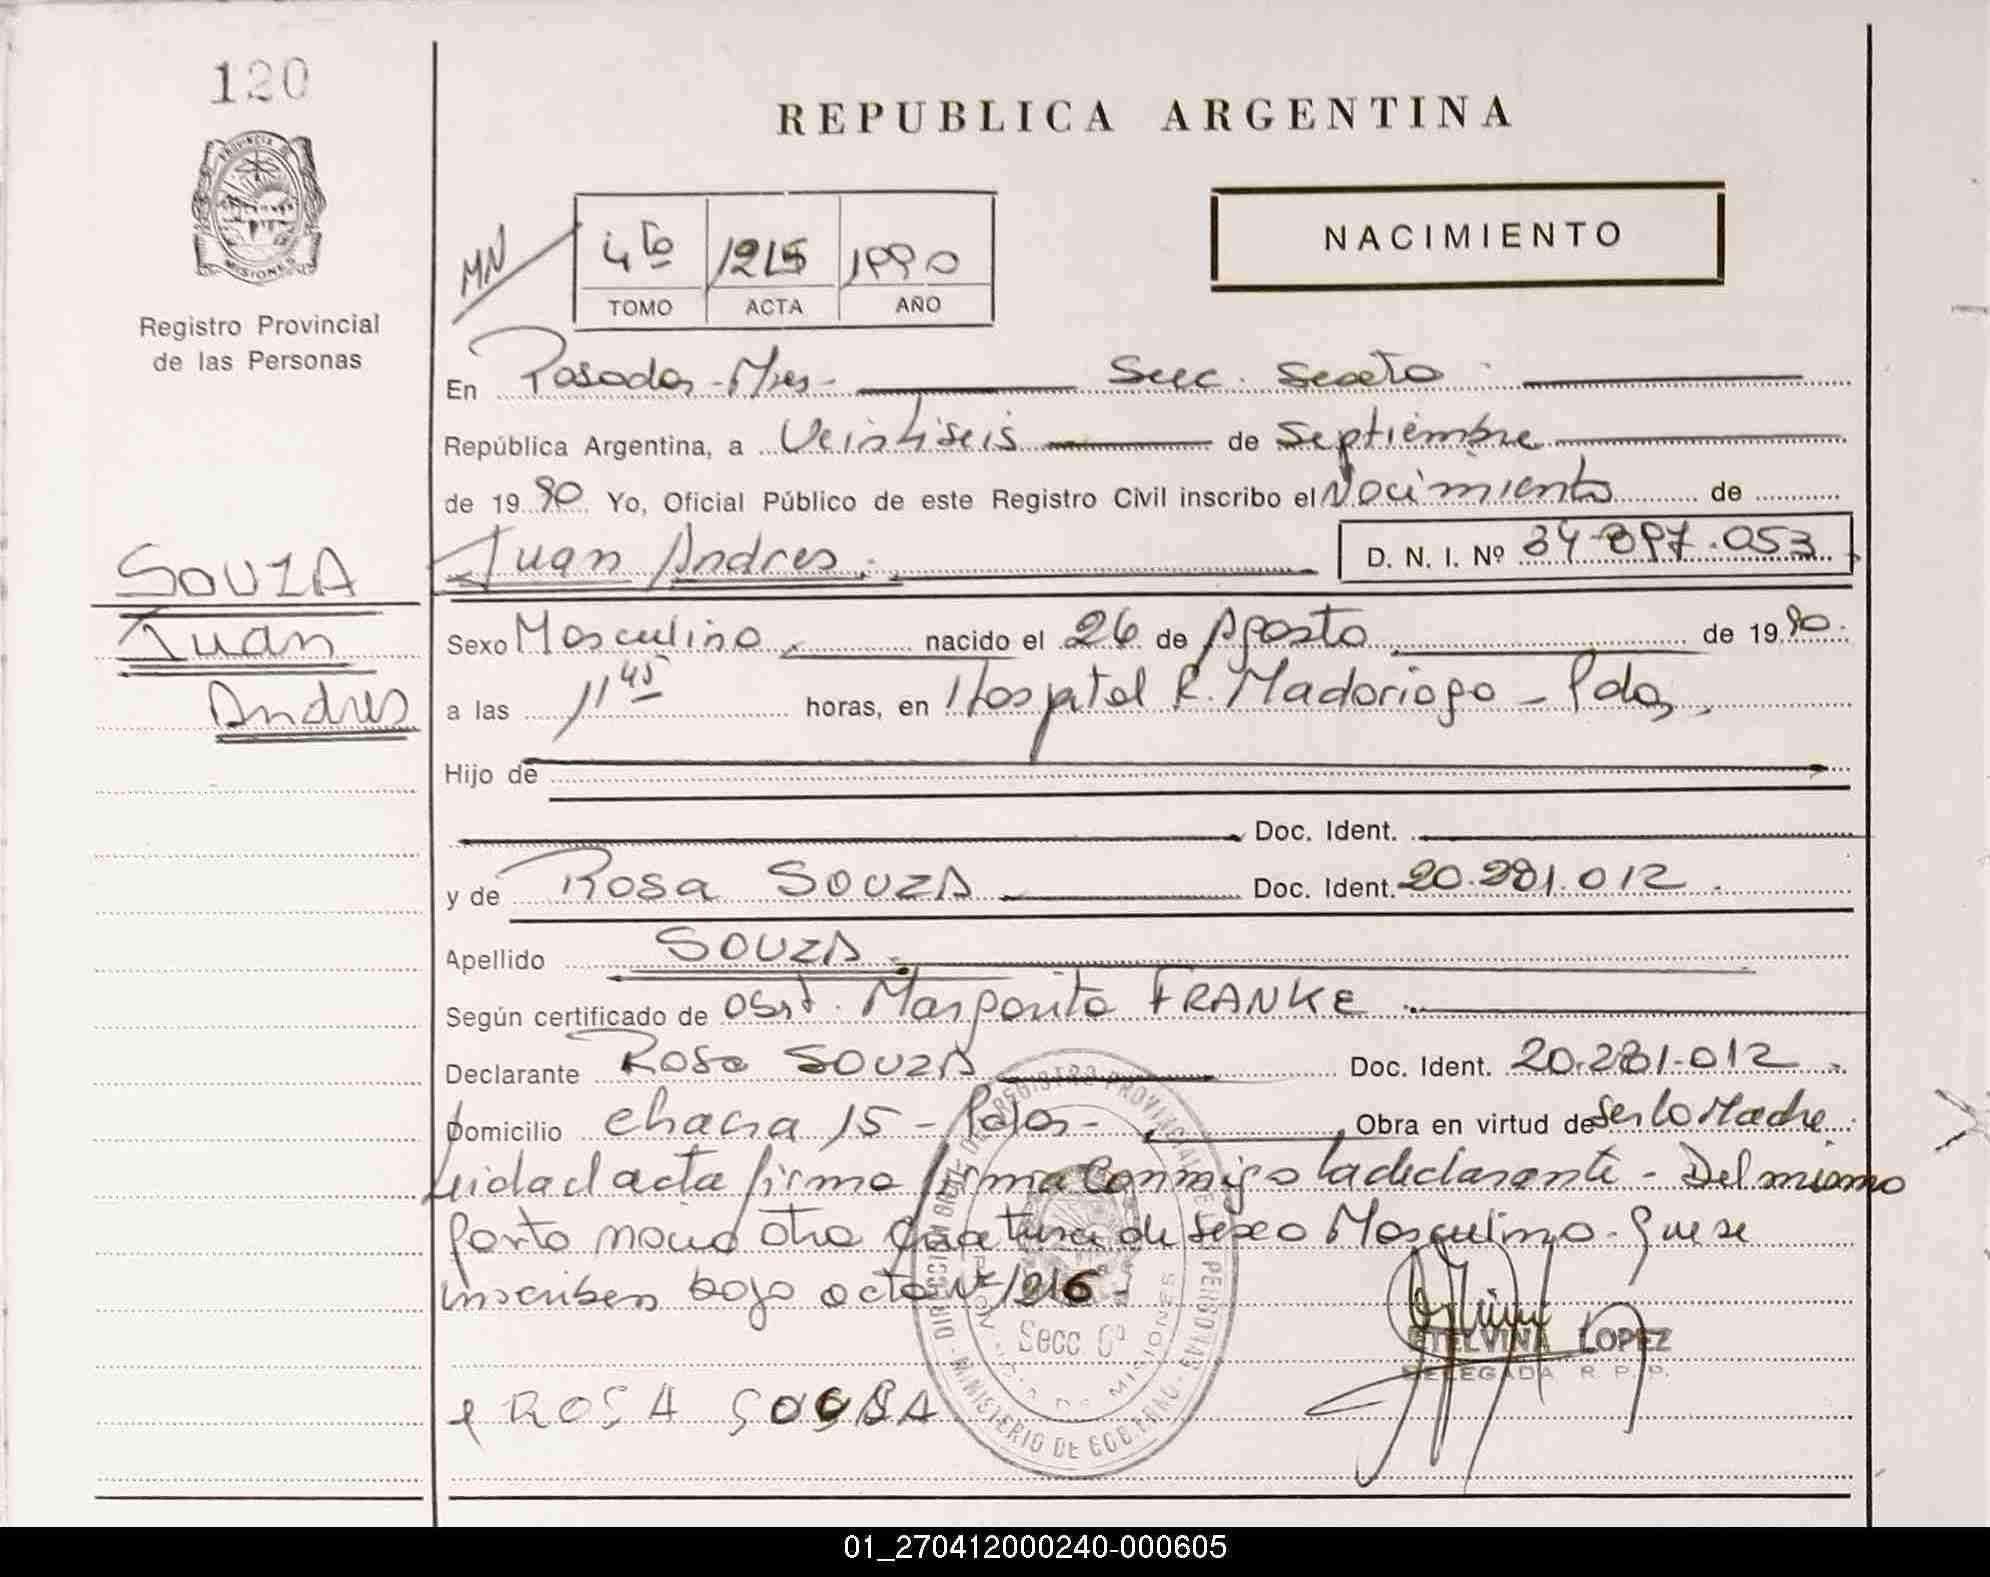 120
PROVINCIA DE
MISIONES
Registro Provincial
de las Personas
REPUBLICA ARGENTINA
NACIMIENTO
MN
4to 1215 1990
TOMO ACTA AÑO
En Posadas - Mnes - Secc. Sexta
República Argentina, a Veintiseis de Septiembre
de 1990 Yo, Oficial Público de este Registro Civil inscribo el Nacimiento de
Juan Andres D. N. I. Nº 34.897.053
SOUZA
Juan
Andres
Sexo Masculino nacido el 26 de Agosto de 1990.
a las 11 45 horas, en Hospital R. Madariaga - Pdas,
Hijo de
Doc. Ident.
y de Rosa SOUZA Doc. Ident. 20.281.012
Apellido SOUZA
Según certificado de Obst. Margarita FRANKE
Declarante Rosa SOUZA Doc. Ident. 20.281.012
Domicilio Chacra 15 - Pdas - Obra en virtud de Ser la Madre
Leida el acta firma conmigo la declarante - Del mismo
parto nació otra criatura de sexo Masculino - que se
inscriben bajo acta Nº 1216 -
Secc 6ª
ROSA SOUSA
ETELVINA LOPEZ
DELEGADA R. P. P.
01_270412000240-000605